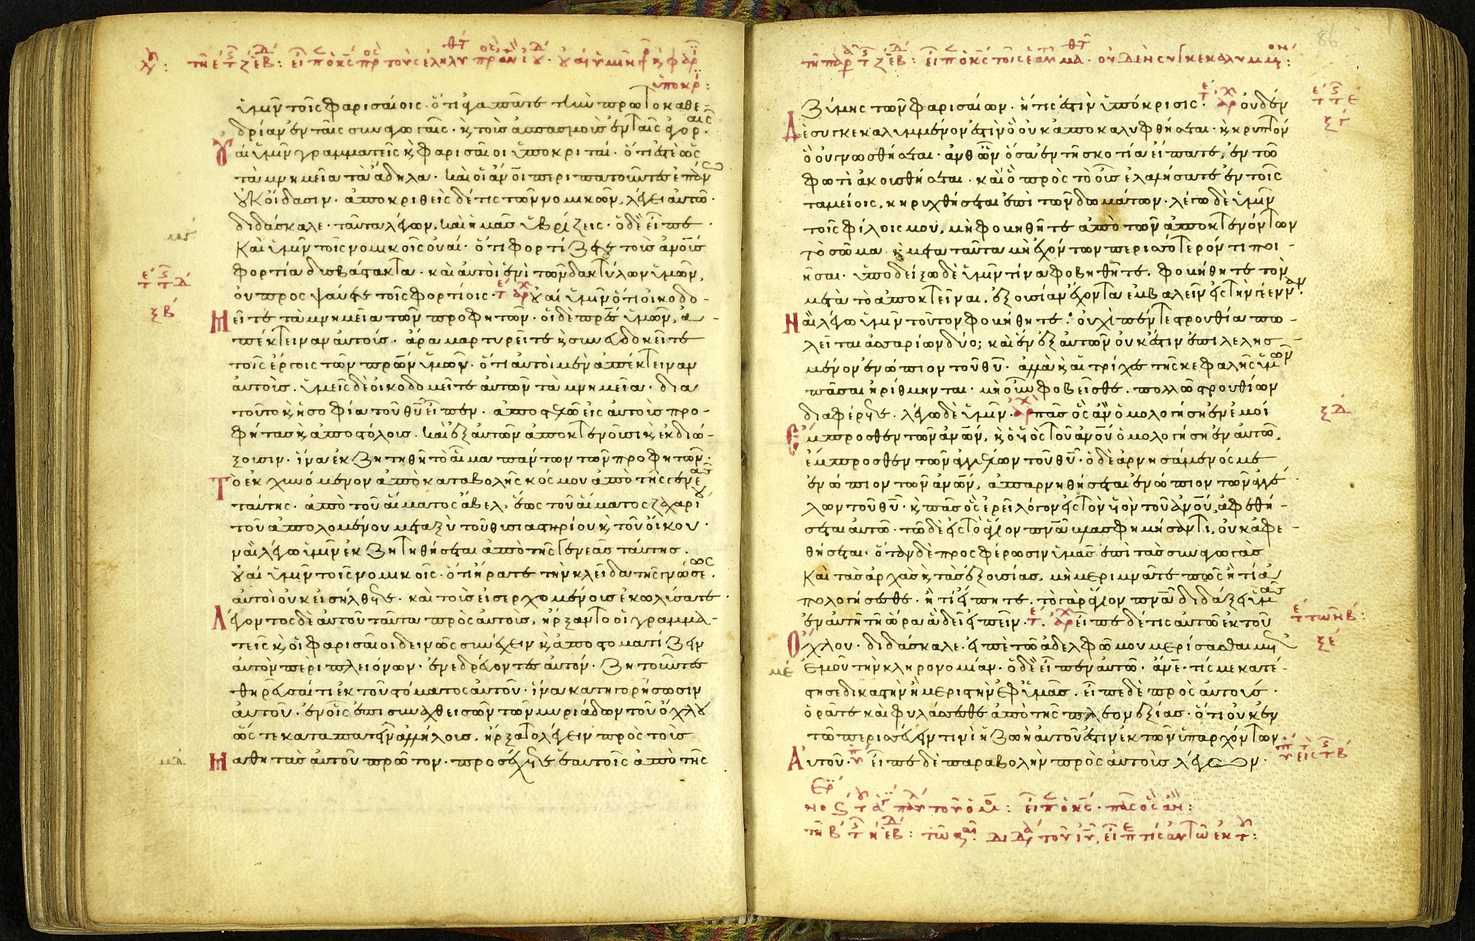 ὑμῖν τοῖς φαρισαίοις· ὅτι ἀγαπᾶτε τὴν πρωτοκαθε-
δρίαν ἐν ταῖς συναγωγαῖς· καὶ τοὺς ἀσπασμοὺς ἐν ταῖς ἀγοραῖς·
οὐαὶ ὑμῖν γραμματεῖς καὶ φαρισαῖοι ὑποκριταί· ὅτι ἐστὲ ὡς
τὰ μνημεῖα τὰ ἄδηλα· καὶ οἱ ἄνοι περιπατοῦντες ἐπάνω
οὐκ οἴδασιν· ἀποκριθεὶς δέ τις τῶν νομικῶν, λέγει αὐτῶ·
διδάσκαλε· ταῦτα λέγων, καὶ ἡμᾶς ὑβρίζεις· ὁ δὲ εἶπε·
Καὶ ὑμῖν τοῖς νομικοῖς οὐαί· ὅτι φορτίζετε τοὺς ἀνους
φορτία δυσβάστακτα· καὶ αὐτοὶ ἑνὶ τῶν δακτύλων ὑμῶν,
οὐ προσψαύετε τοῖς φορτίοις· οὐαὶ ὑμῖν ὅτι οἰκοδο-
μεῖτε τὰ μνημεῖα τῶν προφητῶν· οἱ δὲ πρες ὑμῶν, ἀ-
πέκτειναν αὐτούς· ἄρα μαρτυρεῖτε καὶ συνευδοκεῖτε
τοῖς ἔργοις τῶν πρων ὑμῶν· ὅτι αὐτοὶ μὲν ἀπέκτειναν
αὐτοὺς· ὑμεῖς δὲ οἰκοδομεῖτε αὐτῶν τὰ μνημεῖα· διὰ
τοῦτο καὶ ἡ σοφία τοῦ θυ εἶπεν· ἀποστελῶ εἰς αὐτοὺς προ-
φήτας καὶ ἀποστόλους· καὶ ἐξ αὐτῶν ἀποκτενοῦσι καὶ ἐκδιώ-
ξουσιν· ἵνα ἐκζητηθῆ τὸ αἷμα πάντων τῶν προφητῶν·
Τὸ ἐκχυνόμενον ἀπὸ καταβολῆς κόσμου ἀπὸ τῆς γενεᾶς
ταύτης· ἀπὸ τοῦ αἵματος ἄβελ, ἕως τοῦ αἵματος ζαχαρίου
τοῦ ἀπολομένου μεταξὺ τοῦ θυσιαστηρίου καὶ τοῦ οἴκου·
ναὶ λέγω ὑμῖν ἐκζητηθήσεται ἀπὸ τῆς γενεᾶς ταύτης·
οὐαὶ ὑμῖν τοῖς νομικοῖς· ὅτι ἤρατε τὴν κλεῖδα τῆς γνώσεως·
αὐτοὶ οὐκ εἰσήλθετε· καὶ τοὺς εἰσερχομένους ἐκωλύσατε·
Λέγοντος δὲ αὐτοῦ ταῦτα πρὸς αὐτοὺς, ἤρξαντο οἱ γραμμα-
τεῖς καὶ οἱ φαρισαῖοι δεινῶς συνέχειν καὶ ἀποστοματίζειν
αὐτὸν περὶ πλειόνων· ἐνεδρεύοντες αὐτόν· ζητοῦντες
θηρεῦσαί τι ἐκ τοῦ στόματος αὐτοῦ· ἵνα κατηγορήσωσιν
αὐτοῦ· ἐν οἷς ἐπισυναχθεισῶν τῶν μυριάδων τοῦ ὄχλου
ὥστε καταπατεῖν ἀλλήλους, ἤρξατο λέγειν πρὸς τοὺς
Μαθητὰς αὐτοῦ πρῶτον· προσέχετε ἑαυτοῖς ἀπὸ τῆς
ζύμης τῶν φαρισαίων· ἥτις ἐστὶν ὑπόκρισις· οὐδὲν
Δὲ συγκεκαλυμμένον ἐστὶν ὃ οὐκ ἀποκαλυφθήσεται· καὶ κρυπτὸν
ὃ οὐ γνωσθήσεται· ἀνθ ὧν ὅσα ἐν τῆ σκοτία εἴπατε, ἐν τῶ
φωτὶ ἀκουσθήσεται· καὶ ὃ πρὸς τὸ οὖς ἐλαλήσατε ἐν τοῖς
ταμείοις, κηρυχθήσεται ἐπὶ τῶν δωμάτων· λέγω δὲ ὑμῖν
τοῖς φίλοις μου, μὴ φοβηθῆτε ἀπὸ τῶν ἀποκτενόντων
τὸ σῶμα· καὶ μετὰ ταῦτα μὴ ἐχόντων περισσότερόν τι ποι-
ῆσαι· ὑποδείξω δὲ ὑμῖν τίνα φοβηθῆτε· φοβήθητε τὸν
μετὰ τὸ ἀποκτεῖναι, ἐξουσίαν ἔχοντα ἐμβαλεῖν εἰς τὴν γέενναν·
Ναὶ λέγω ὑμῖν τοῦτον φοβήθητε· οὐχὶ πέντε στρουθία πω-
λεῖται ἀσσαρίων δύο; καὶ ἓν ἐξ αὐτῶν οὐκ ἔστιν ἐπιλελησ-
μένον ἐνώπιον τοῦ θυ· ἀλλὰ καὶ αἱ τρίχες τῆς κεφαλῆς ὑμῶν
πᾶσαι ἠρίθμηνται· μὴ οὖν φοβεῖσθε· πολλῶν στρουθίων
διαφέρετε· λέγω δὲ ὑμῖν· πᾶς ὃς ἂν ὁμολογήση ἐν ἐμοὶ
Ἔμπροσθεν τῶν ἀνων, καὶ ὁ υς τοῦ ανου ὁμολογήσει ἐν αὐτῶ,
ἔμπροσθεν τῶν ἀγγέλων τοῦ θυ· ὁ δὲ ἀρνησάμενός με
ἐνώπιον τῶν ἀνων, ἀπαρνηθήσεται ἐνώπιον τῶν ἀγγέ-
λων τοῦ θυ· καὶ πᾶς ὃς ἐρεῖ λόγον εἰς τὸν υν τοῦ ἀνου, ἀφεθή-
σεται αὐτῶ· τῶ δὲ εἰς τὸ ἅγιον πνα βλασφημήσαντι, οὐκ ἀφε-
θήσεται· ὅταν δὲ προσφέρωσιν ὑμᾶς ἐπὶ τὰς συναγωγὰς
Καὶ τὰς ἀρχὰς καὶ τὰς ἐξουσίας, μὴ μεριμνᾶτε πῶς ἢ τί ἀ-
πολογήσεσθε· ἢ τί εἴπητε· τὸ γὰρ ἅγιον πνα διδάξει ὑμᾶς
ἐν αὐτῆ τῆ ὥρα ἃ δεῖ εἰπεῖν· εἶπε δέ τις αὐτῶ ἐκ τοῦ
Ὄχλου· διδάσκαλε· εἰπὲ τῶ ἀδελφῶ μου μερίσασθαι μετ
ἐμοῦ τὴν κληρονομίαν· ὁ δὲ εἶπεν αὐτῶ· ἄνε· τίς με κατέ-
στησε δικαστὴν ἢ μεριστὴν ἐφ ὑμᾶς· εἶπε δὲ πρὸς αὐτοὺς·
ὁρᾶτε καὶ φυλάσσεσθε ἀπὸ τῆς πλεονεξίας· ὅτι οὐκ ἐν
τῶ περισσεύειν τινὶ ἡ ζωὴ αὐτοῦ ἐστὶν ἐκ τῶν ὑπαρχόντων
Αὐτοῦ· εἶπε δὲ παραβολὴν πρὸς αὐτοὺς λέγων·